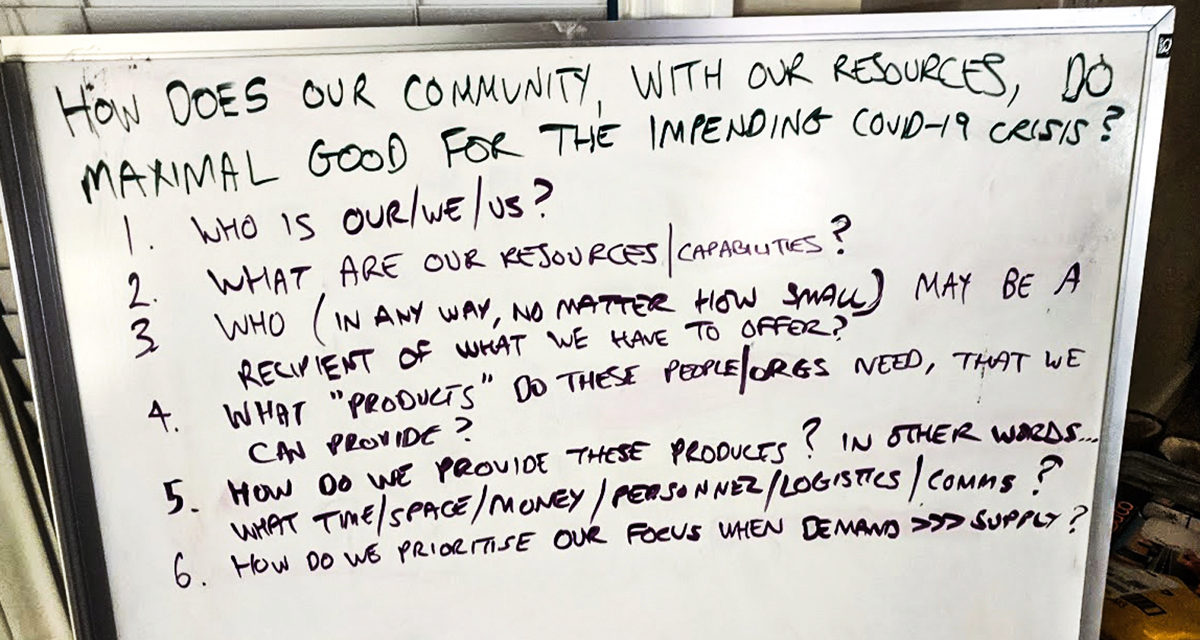 HOW DOES OUR COMMUNITY, WITH OUR RESOURCES, DO
MAXIMAL GOOD FOR THE IMPENDING COVID-19 CRISIS?
1. WHO IS OUR/WE/US?
2. WHAT ARE OUR RESOURCES/CAPABILITIES?
3 WHO (IN ANY WAY, NO MATTER HOW SMALL) MAY BE A
RECIPIENT OF WHAT WE HAVE TO OFFER?
4. WHAT "PRODUCTS" DO THESE PEOPLE/ORGS NEED, THAT WE
CAN PROVIDE?
5. HOW DO WE PROVIDE THESE PRODUCTS? IN OTHER WORDS...
WHAT TIME/SPACE/MONEY/PERSONNEL/LOGISTICS/COMMS?
6. HOW DO WE PRIORITISE OUR FOCUS WHEN DEMAND >>> SUPPLY?